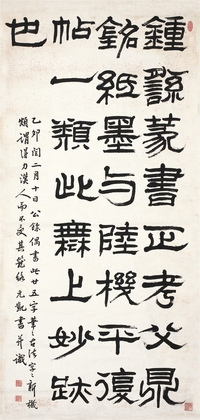 鍾繇篆書正考父鼎
銘紙墨与陸機平復
帖一類此無上妙跡
也
乙卯閏二月十日公餘偶書此廿五字筆〻古法字〻新機
頗謂得力漢人而不受其籠絡 元凱書并識